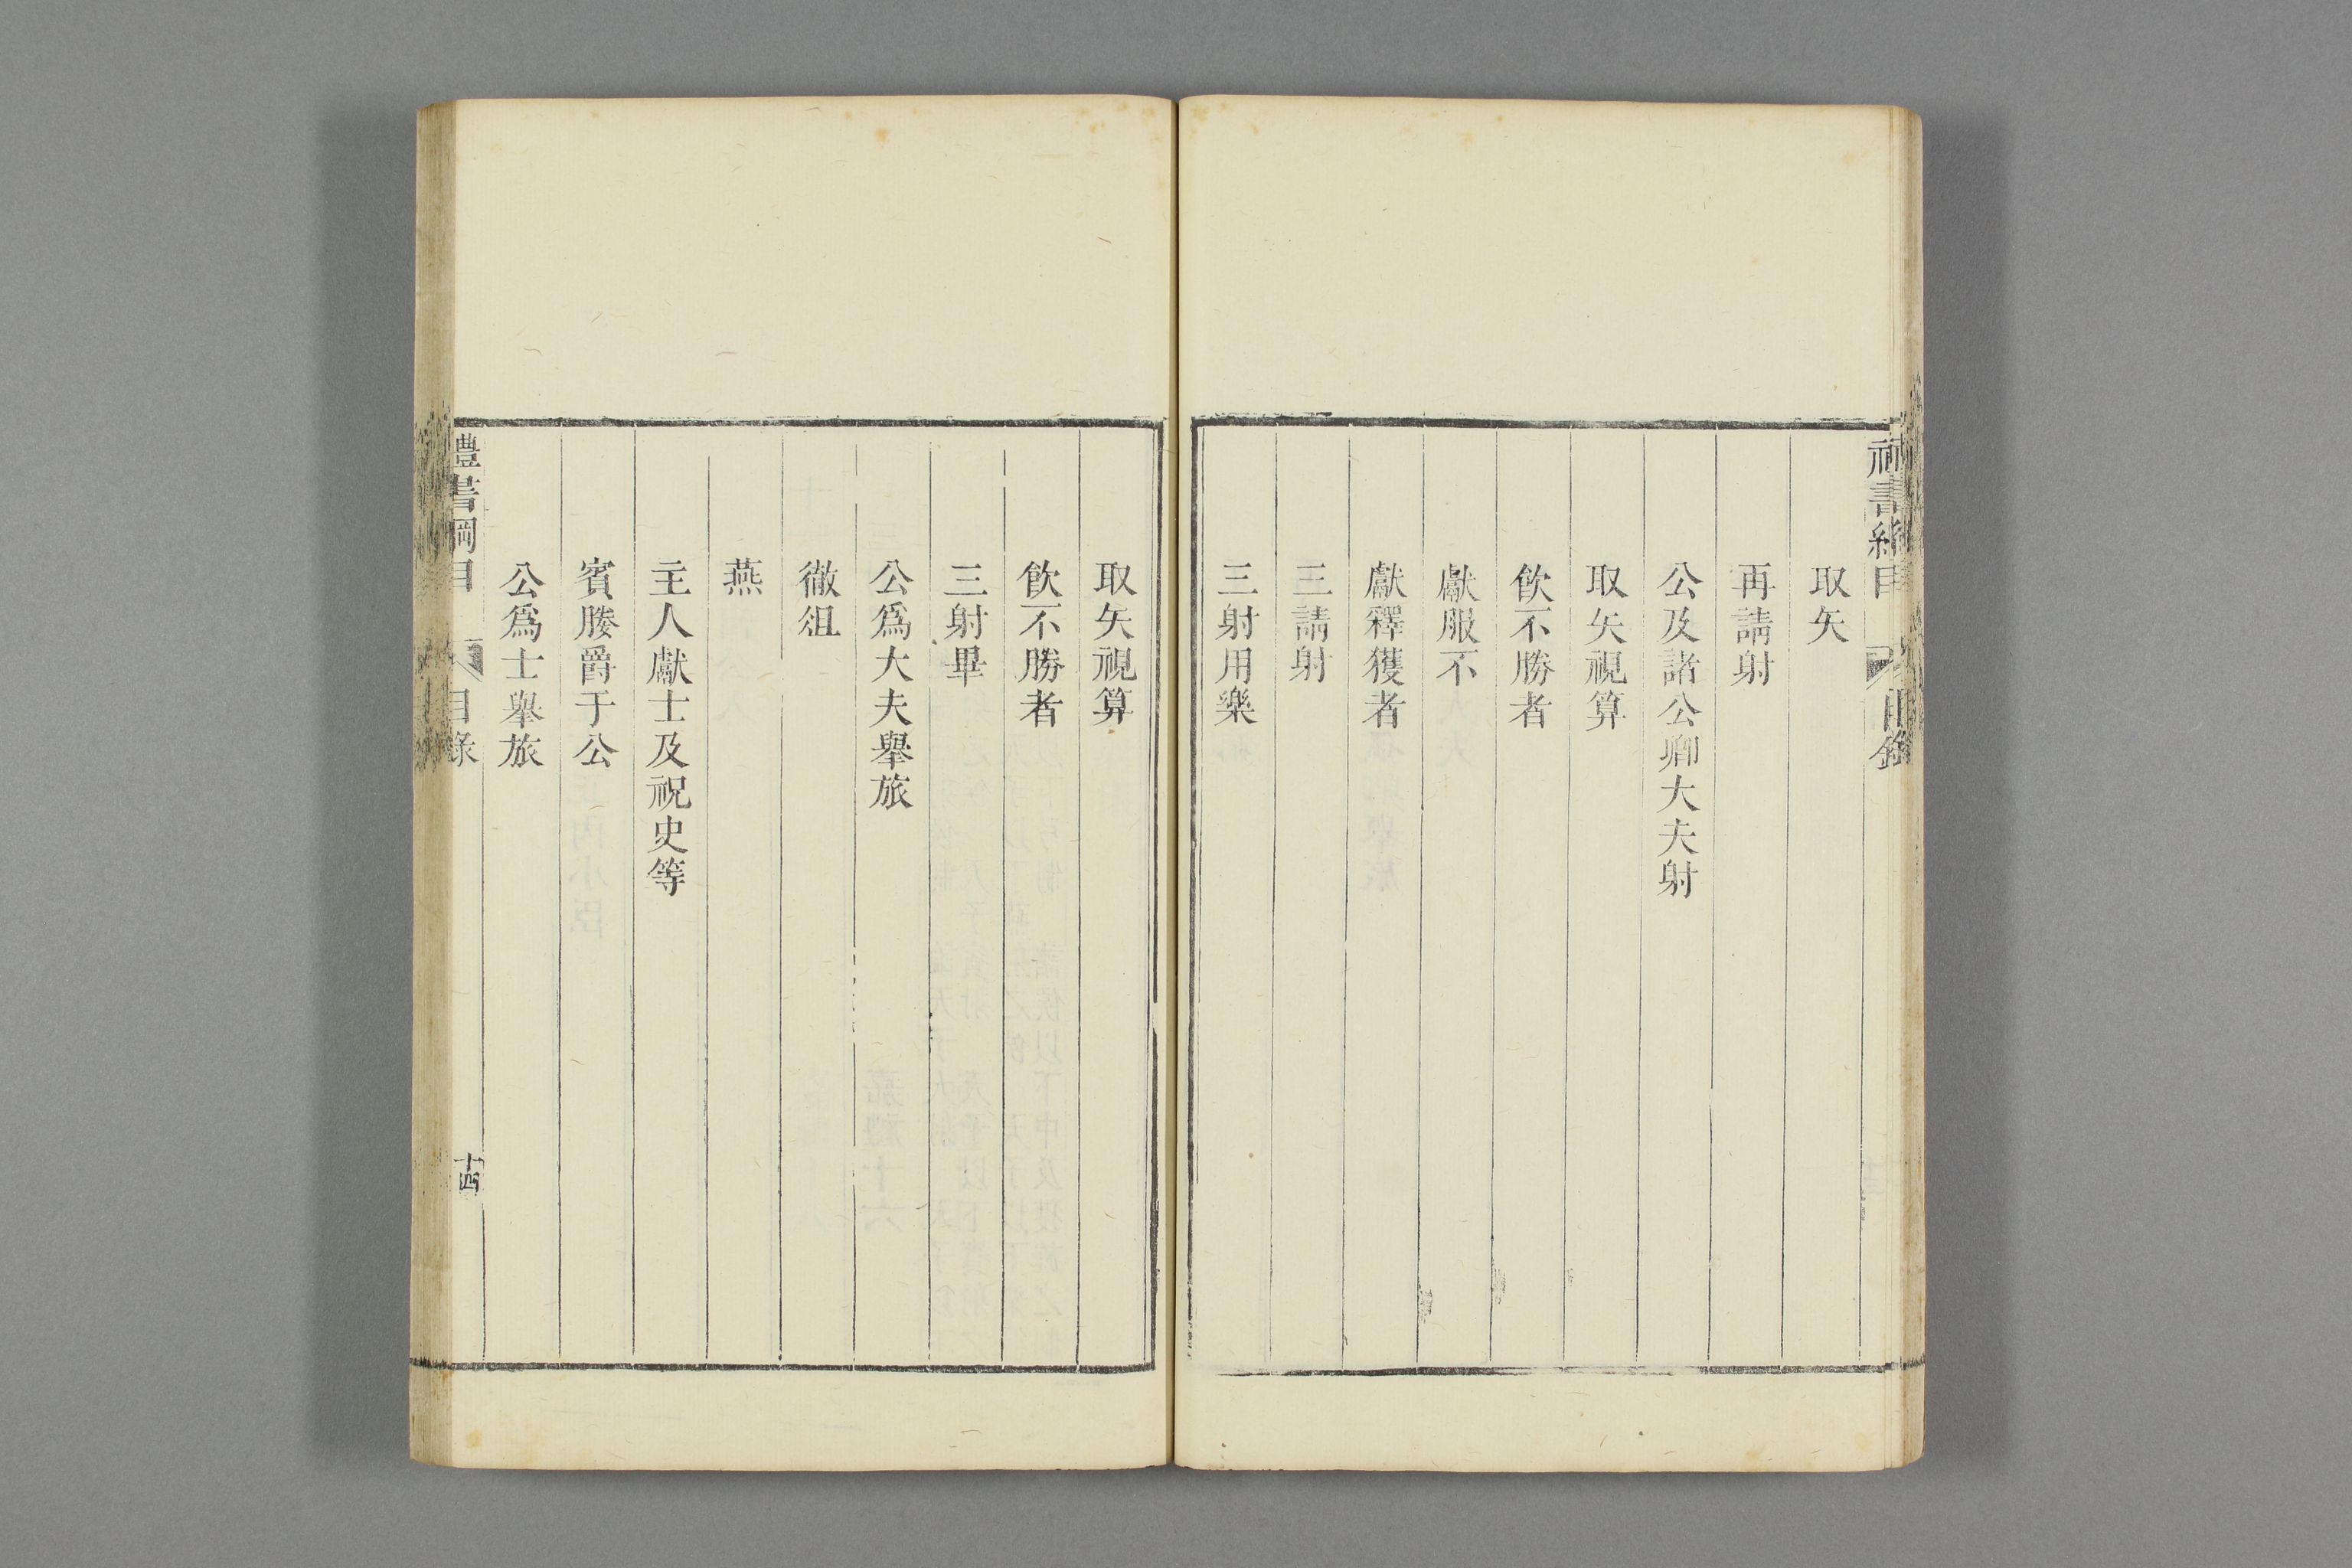 取矢
再請射
公及諸公卿大夫射
取矢視算
飲不勝者
獻服不
獻釋獲者
三請射
三射用樂
取矢視算
飲不勝者
三射畢
公爲大夫舉旅
徹俎
燕
主人獻士及祝史等
賓媵爵于公
公爲士舉旅
禮書綱目 目錄 十四